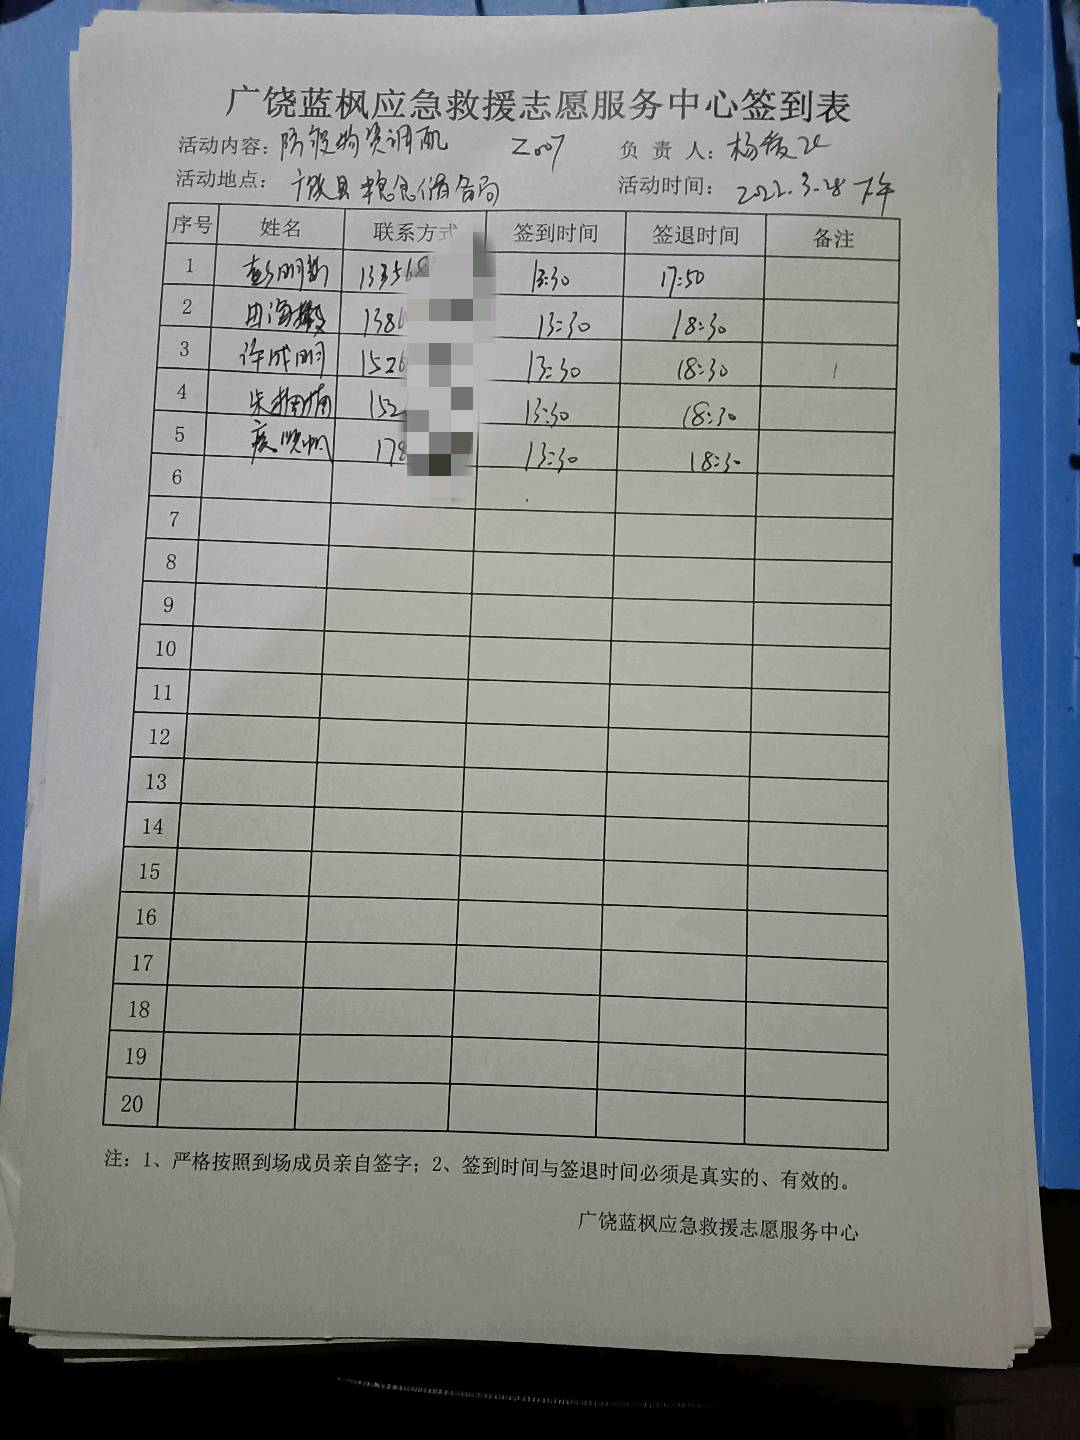 广饶蓝枫应急救援志愿服务中心签到表
活动内容：防疫物资调配 Z007 负责人：杨俊
活动地点：广饶县粮食储备局 活动时间：2022.3.28 下午
序号 姓名 联系方式 签到时间 签退时间 备注
1 彭明 133568 13:30 17:50
2 田海 138 13:30 18:30
3 许成明 1526 13:30 18:30
4 朱楠楠 152 13:30 18:30
5 晓帆 178 13:30 18:30
6
7
8
9
10
11
12
13
14
15
16
17
18
19
20
注：1、严格按照到场成员亲自签字；2、签到时间与签退时间必须是真实的、有效的。
广饶蓝枫应急救援志愿服务中心